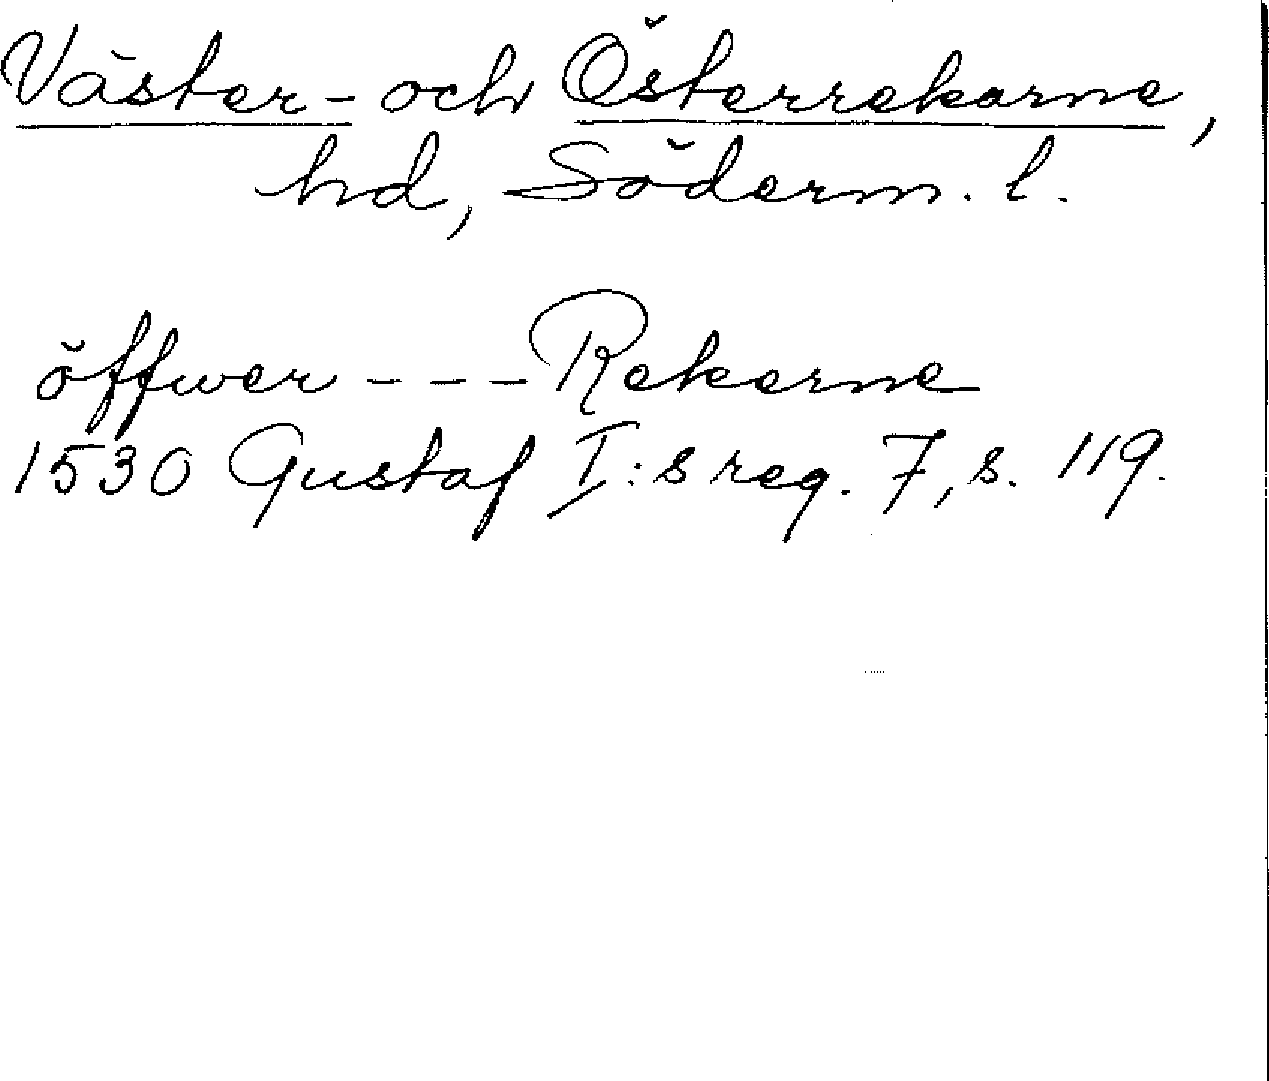 Väster- och Österrekarne,
hd, Söderm. l.
öffwer - - - Rekerne
1530 Gustaf I:s reg. 7, s. 119.